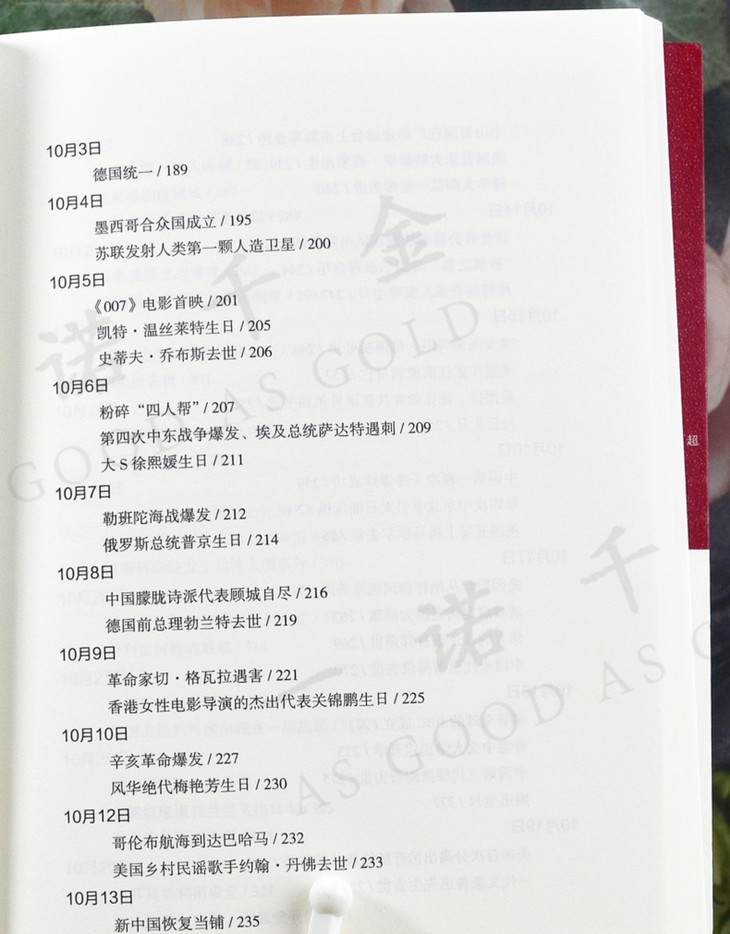 10月3日
德国统一 / 189
10月4日
墨西哥合众国成立 / 195
苏联发射人类第一颗人造卫星 / 200
10月5日
《007》电影首映 / 201
凯特·温丝莱特生日 / 205
史蒂夫·乔布斯去世 / 206
10月6日
粉碎“四人帮” / 207
第四次中东战争爆发、埃及总统萨达特遇刺 / 209
大S徐熙媛生日 / 211
10月7日
勒班陀海战爆发 / 212
俄罗斯总统普京生日 / 214
10月8日
中国朦胧诗派代表顾城自尽 / 216
德国前总理勃兰特去世 / 219
10月9日
革命家切·格瓦拉遇害 / 221
香港女性电影导演的杰出代表关锦鹏生日 / 225
10月10日
辛亥革命爆发 / 227
风华绝代梅艳芳生日 / 230
10月12日
哥伦布航海到达巴哈马 / 232
美国乡村民谣歌手约翰·丹佛去世 / 233
10月13日
新中国恢复当铺 / 235
超
诺千金
GOOD AS GOLD
一诺千
AS GOOD AS G